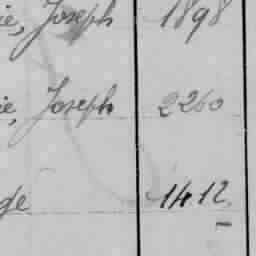 ie, Joseph 1898
ie, Joseph 2260
ge 1412